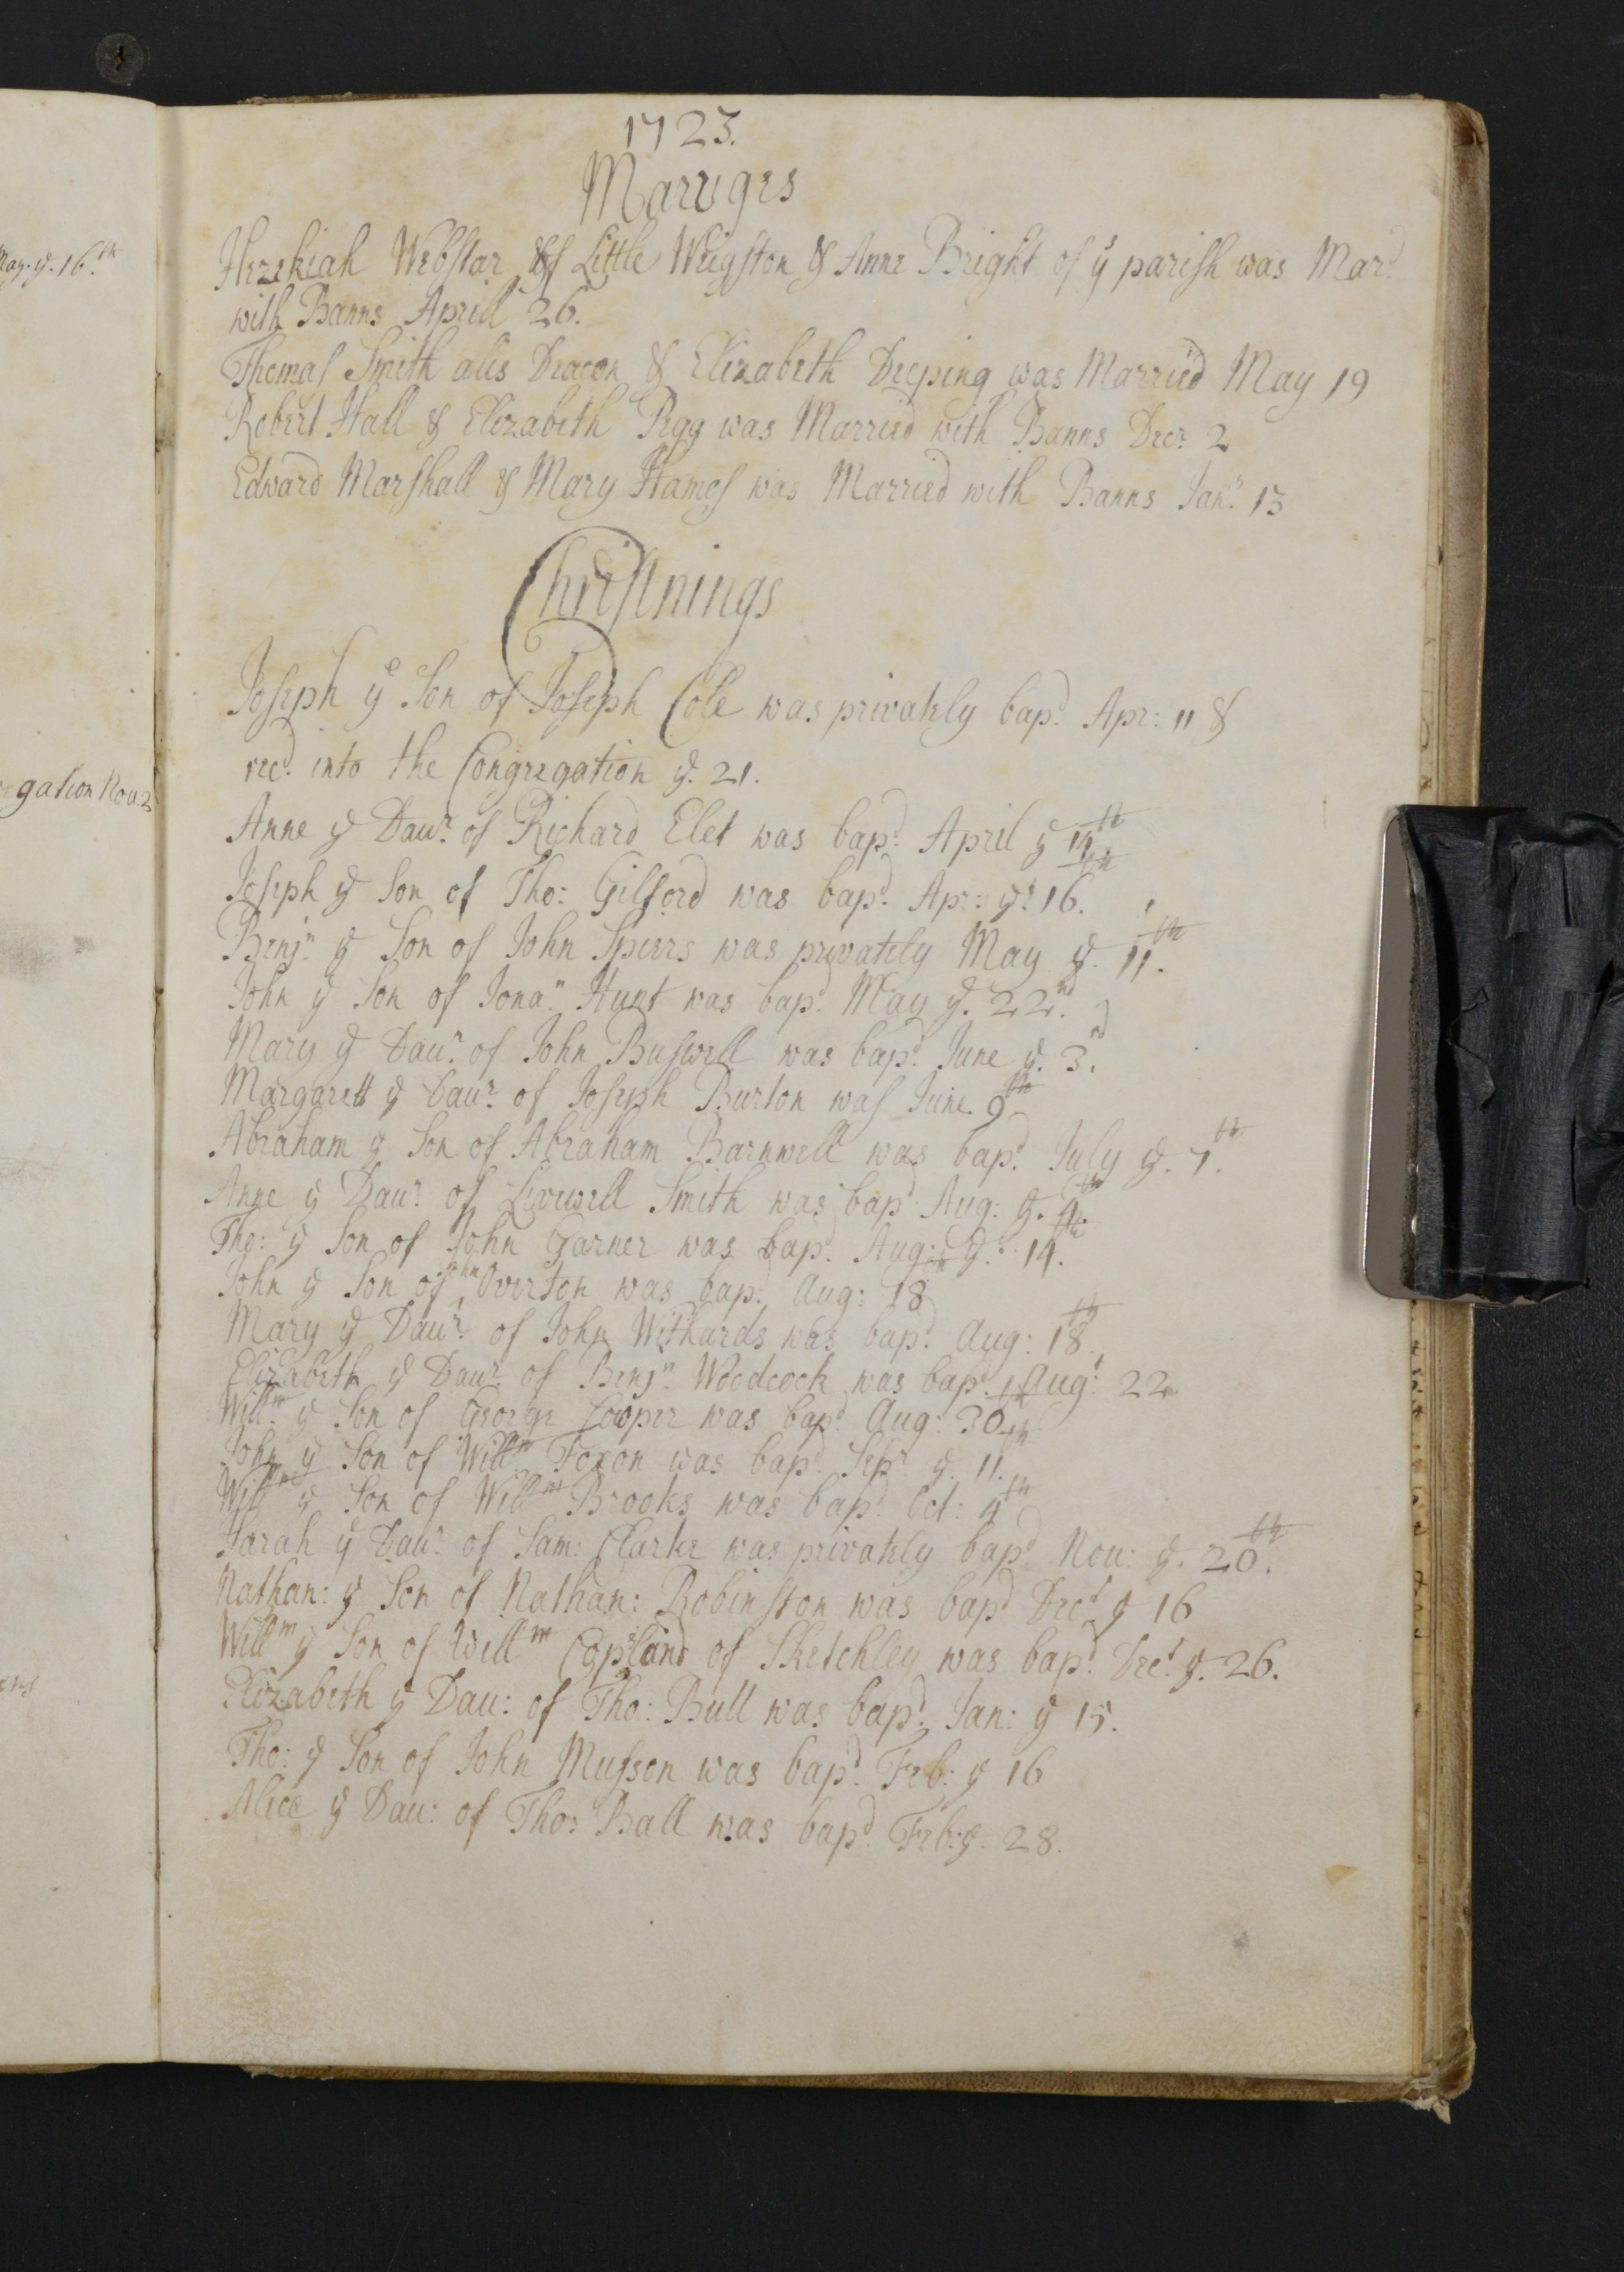 May. ye. 16.th
egation Nou. 2
ens
1723.
Mariges
Hezekiah Webstar of Little Weigston & Anne Bright of ys parish was Mard.
with Banns April 26.
Thomas Smith alis Deacon & Elizabeth Deeping was Married May 19
Robert Hall & Elizabeth Pegg was Married with Banns Decr. 2
Edward Marshall & Mary Hames was Married with Banns Jany. 13
Christnings
Joseph ye Son of Joseph Cole was privately bapd. Apr: 11 &
recd. into the Congregation ye. 21.
Anne ye Daur. of Richard Elet was bapd. April ye 14th
Joseph ye Son of Tho: Gilford was bapd. Apr: ye. 16th.
Benjn. ye Son of John Speers was privately May ye. 11th.
John ye Son of Jonan. Hunt was bapd. May ye. 22nd.
Mary ye Daur. of John Buswell was bapd. June ye. 3rd.
Margarett ye Daur. of Joseph Burton was June 9th
Abraham ye Son of Abraham Barnwell was bapd. July ye. 7th.
Anne ye Daur. of Livewell Smith was bapd. Aug: ye. 4th.
Tho: ye Son of John Garner was bapd. Aug: ye: 14th.
John ye Son of Jhn Overton was bapd. Aug: 18th
Mary ye Daur. of John Withards was bapd. Aug: 18th.
Elizabeth ye Daur. of Benjn. Woodcock was bapd. Augt: 22
Willm. ye Son of George Cooper was bapd. Aug: 30th
John ye Son of Willm Foxon was bapd. Sepr. ye. 11th.
Willm ye Son of Willm Brooks was bapd. Oct: 4th
Sarah ye Daur. of Sam: Clarke was privately bapd. Nou: ye. 20th.
Nathan: ye Son of Nathan: Robinston was bapd Decr ye 16
Willm ye Son of Willm Copland of Sketchley was bapd. Decr. ye. 26.
Elizabeth ye Dau: of Tho: Bull was bapd. Jan: ye 15.
Tho: ye Son of John Musson was bapd. Feb: ye 16
Alice ye Dau: of Tho: Ball was bapd. Feb: ye. 28.